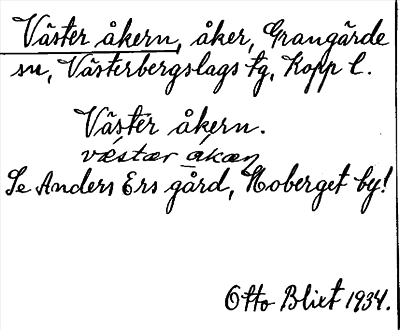 Väster åkern, åker, Grangärde
sn, Västerbergslags tg, Kopp l.
Väster åkern.
væstær åkæɳ
Se Anders Ers gård, Moberget by!
Otto Blixt 1934.